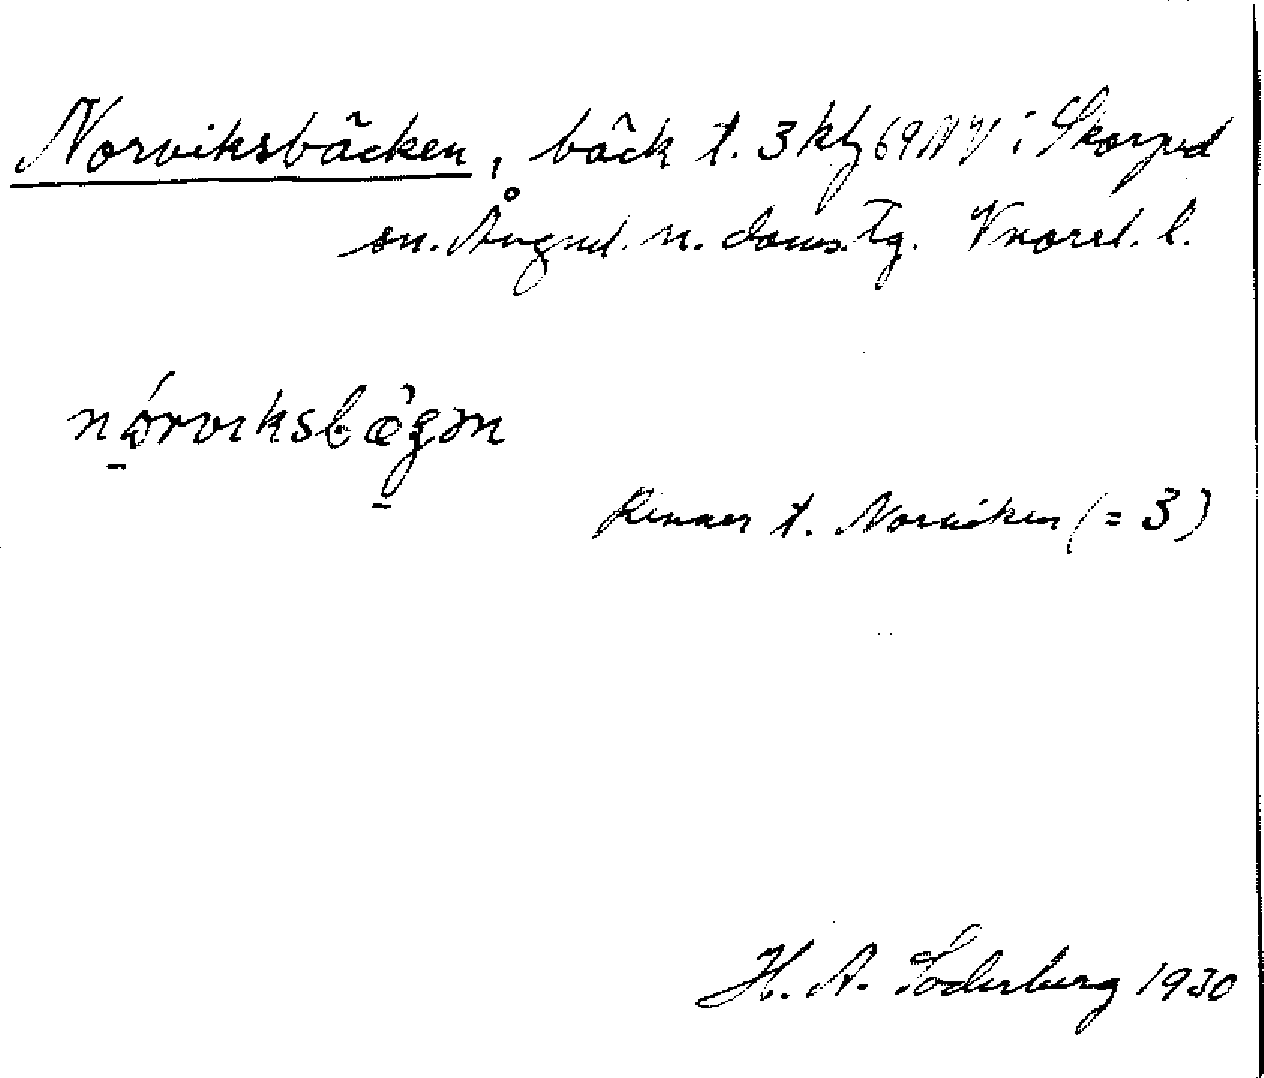 Norviksbäcken, bäck t. 3 kbl 69 NV i Skorped
sn. Ångml. n. doms. Tg. Vnorrl. l.
nórviksbæ̀gən
Rinner t. Norviken (= 3)
H. A. Söderberg 1930